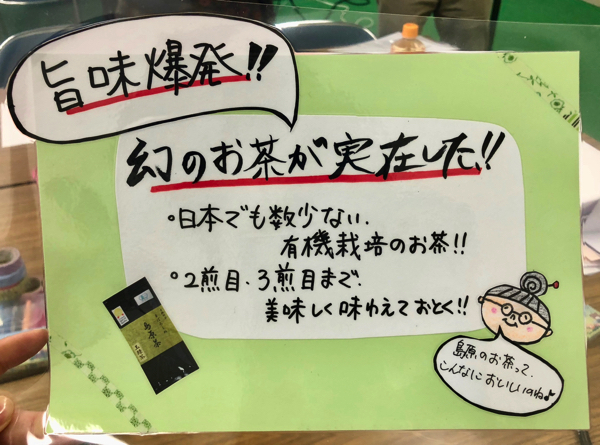 旨味爆発!!
幻のお茶が実在した!!
°日本でも数少ない.
有機栽培のお茶!!
°2煎目.3煎目まで.
美味しく味わえておとく!!
島原茶
島原のお茶って、
こんなにおいしいのね♪